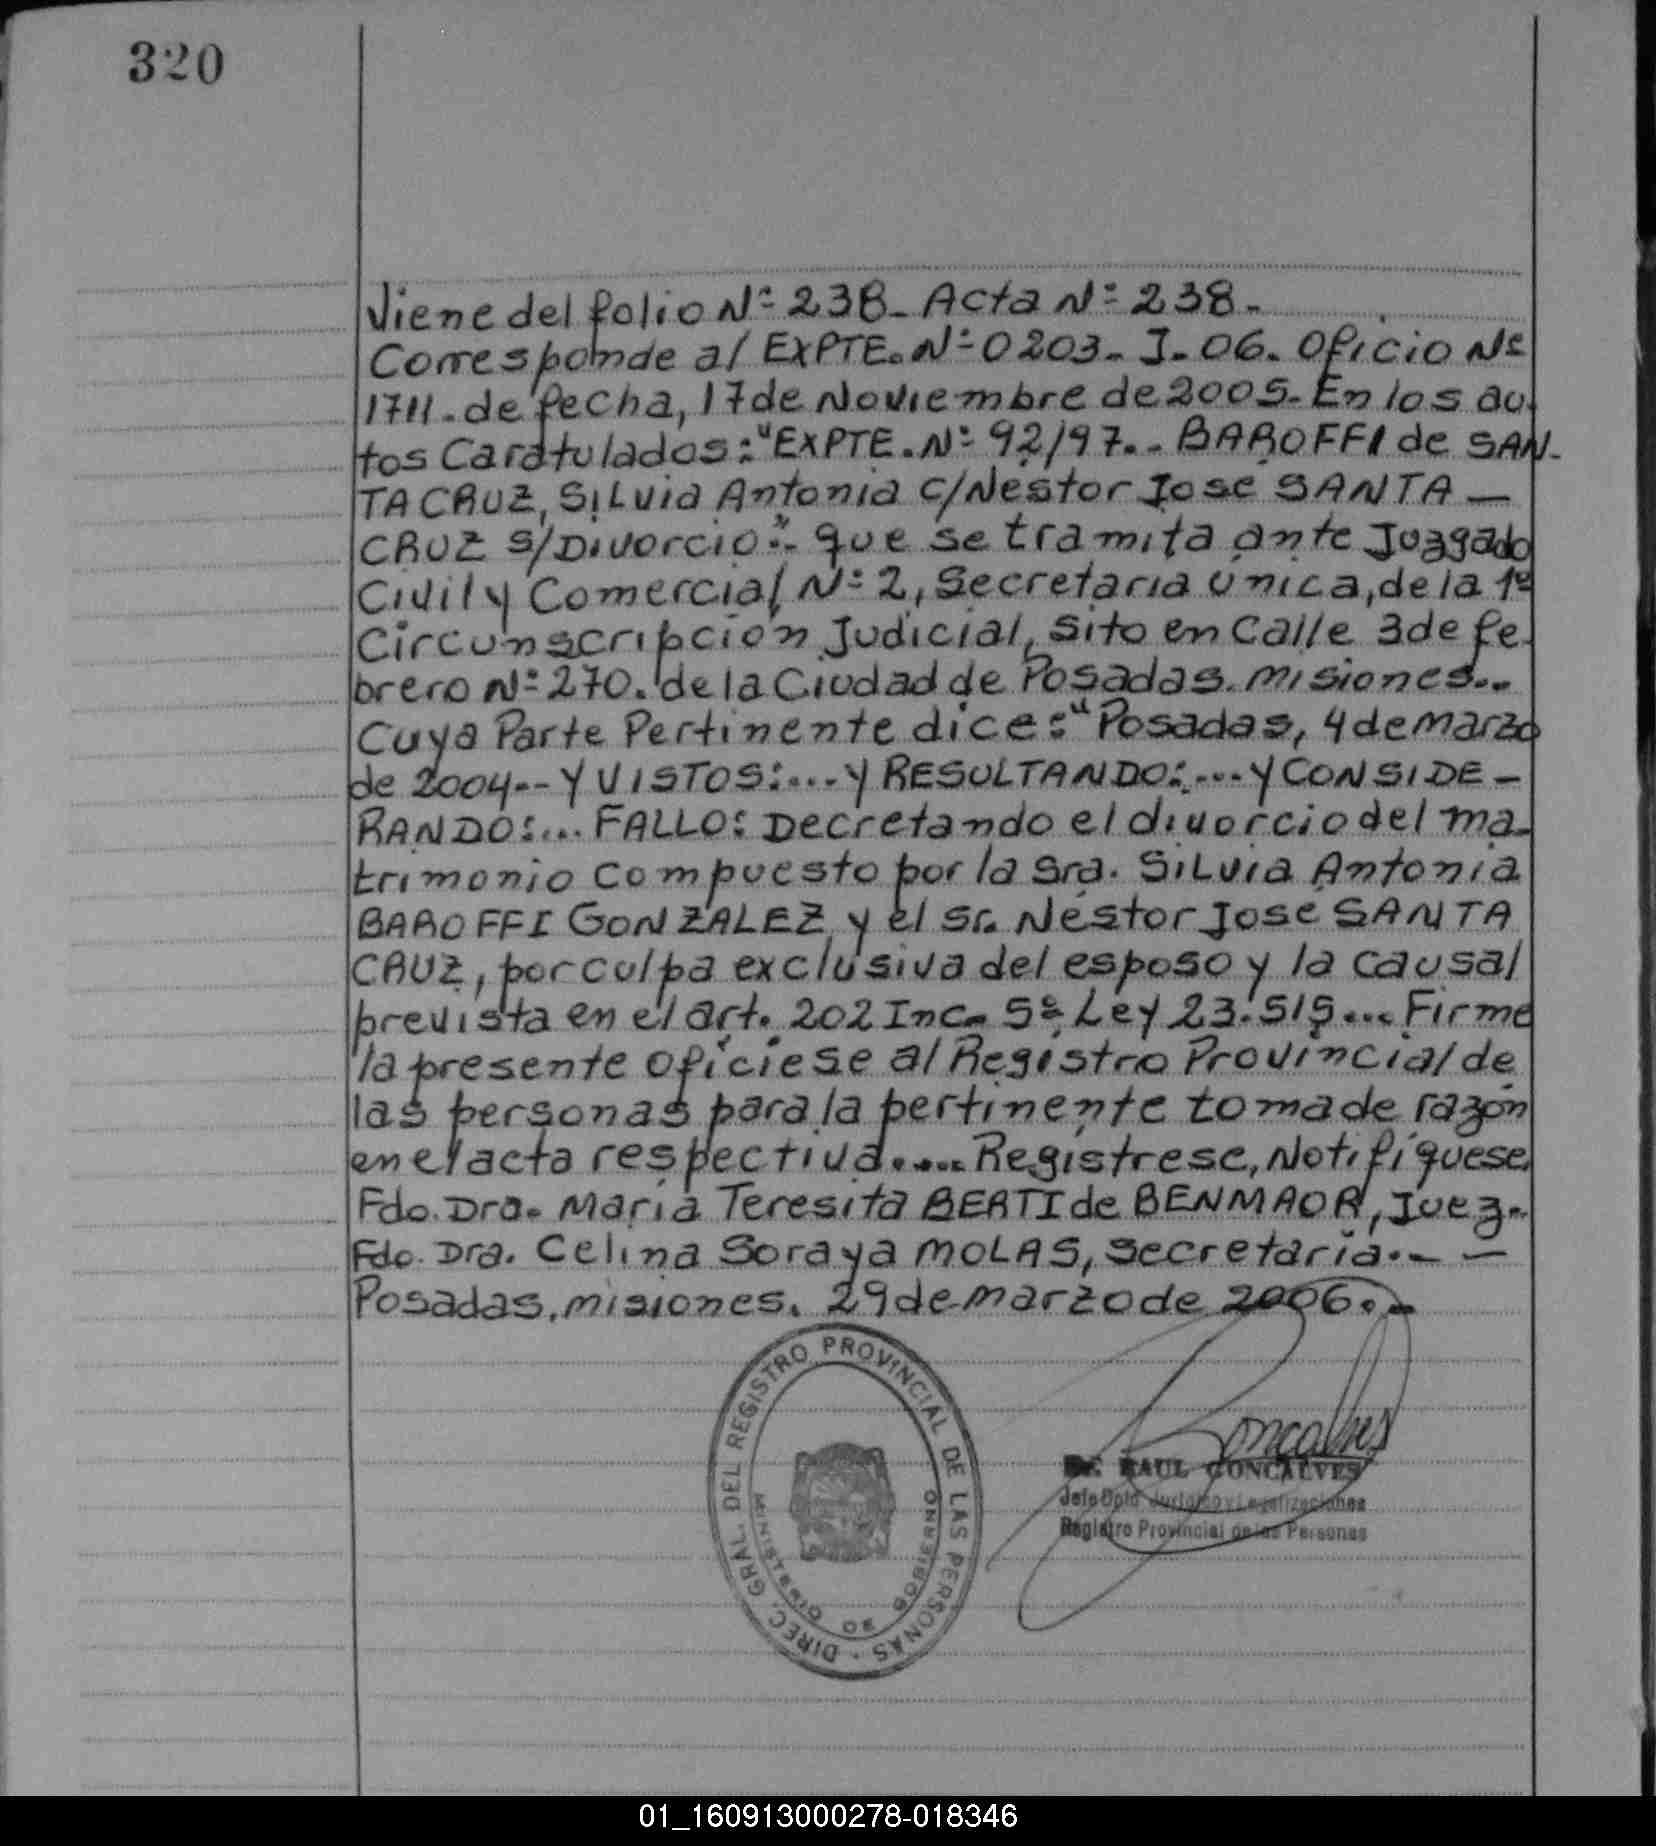 320
Viene del folio Nº 238_ Acta Nº 238_
Corresponde al EXPTE. Nº 0203. J. 06. Oficio Nº
1711. de fecha, 17 de Noviembre de 2005. En los au-
tos Caratulados: "EXPTE. Nº 92/97.. BAROFFI de SAN-
TA CRUZ, SILVia Antonia c/Nestor José SANTA —
CRUZ s/Divorcio". que se tramita ante Juzgado
Civil y Comercial Nº 2, Secretaria única, de la 1ª
Circunscripción Judicial, sito en Calle 3 de fe-
brero Nº 270. de la Ciudad de Posadas. misiones...
Cuya Parte Pertinente dice: "Posadas, 4 de marzo
de 2004.-- Y VISTOS:.... Y RESULTANDO:.... Y CONSIDE-
RANDO:... FALLO: Decretando el divorcio del ma-
trimonio compuesto por la Sra. SILVIA Antonia
BAROFFI GONZALEZ y el Sr. Néstor José SANTA
CRUZ, por culpa exclusiva del esposo y la causal
prevista en el art. 202 Inc. 5º Ley 23.515.... Firme
la presente ofíciese al Registro Provincial de
las personas para la pertinente toma de razón
en el acta respectiva..... Regístrese, Notifíquese.
Fdo. Dra. María Teresita BERTI de BENMAOR, Juez..
Fdo. Dra. Celina Soraya MOLAS, secretaría.- —
Posadas, misiones. 29 de marzo de 2006..-
DIREC. GRAL. DEL REGISTRO PROVINCIAL DE LAS PERSONAS
MINISTERIO DE GOBIERNO
Goncalves
Dr. RAUL GONCALVES
Jefe Dpto. Jurídico y Legalizaciones
Registro Provincial de las Personas
01_160913000278-018346